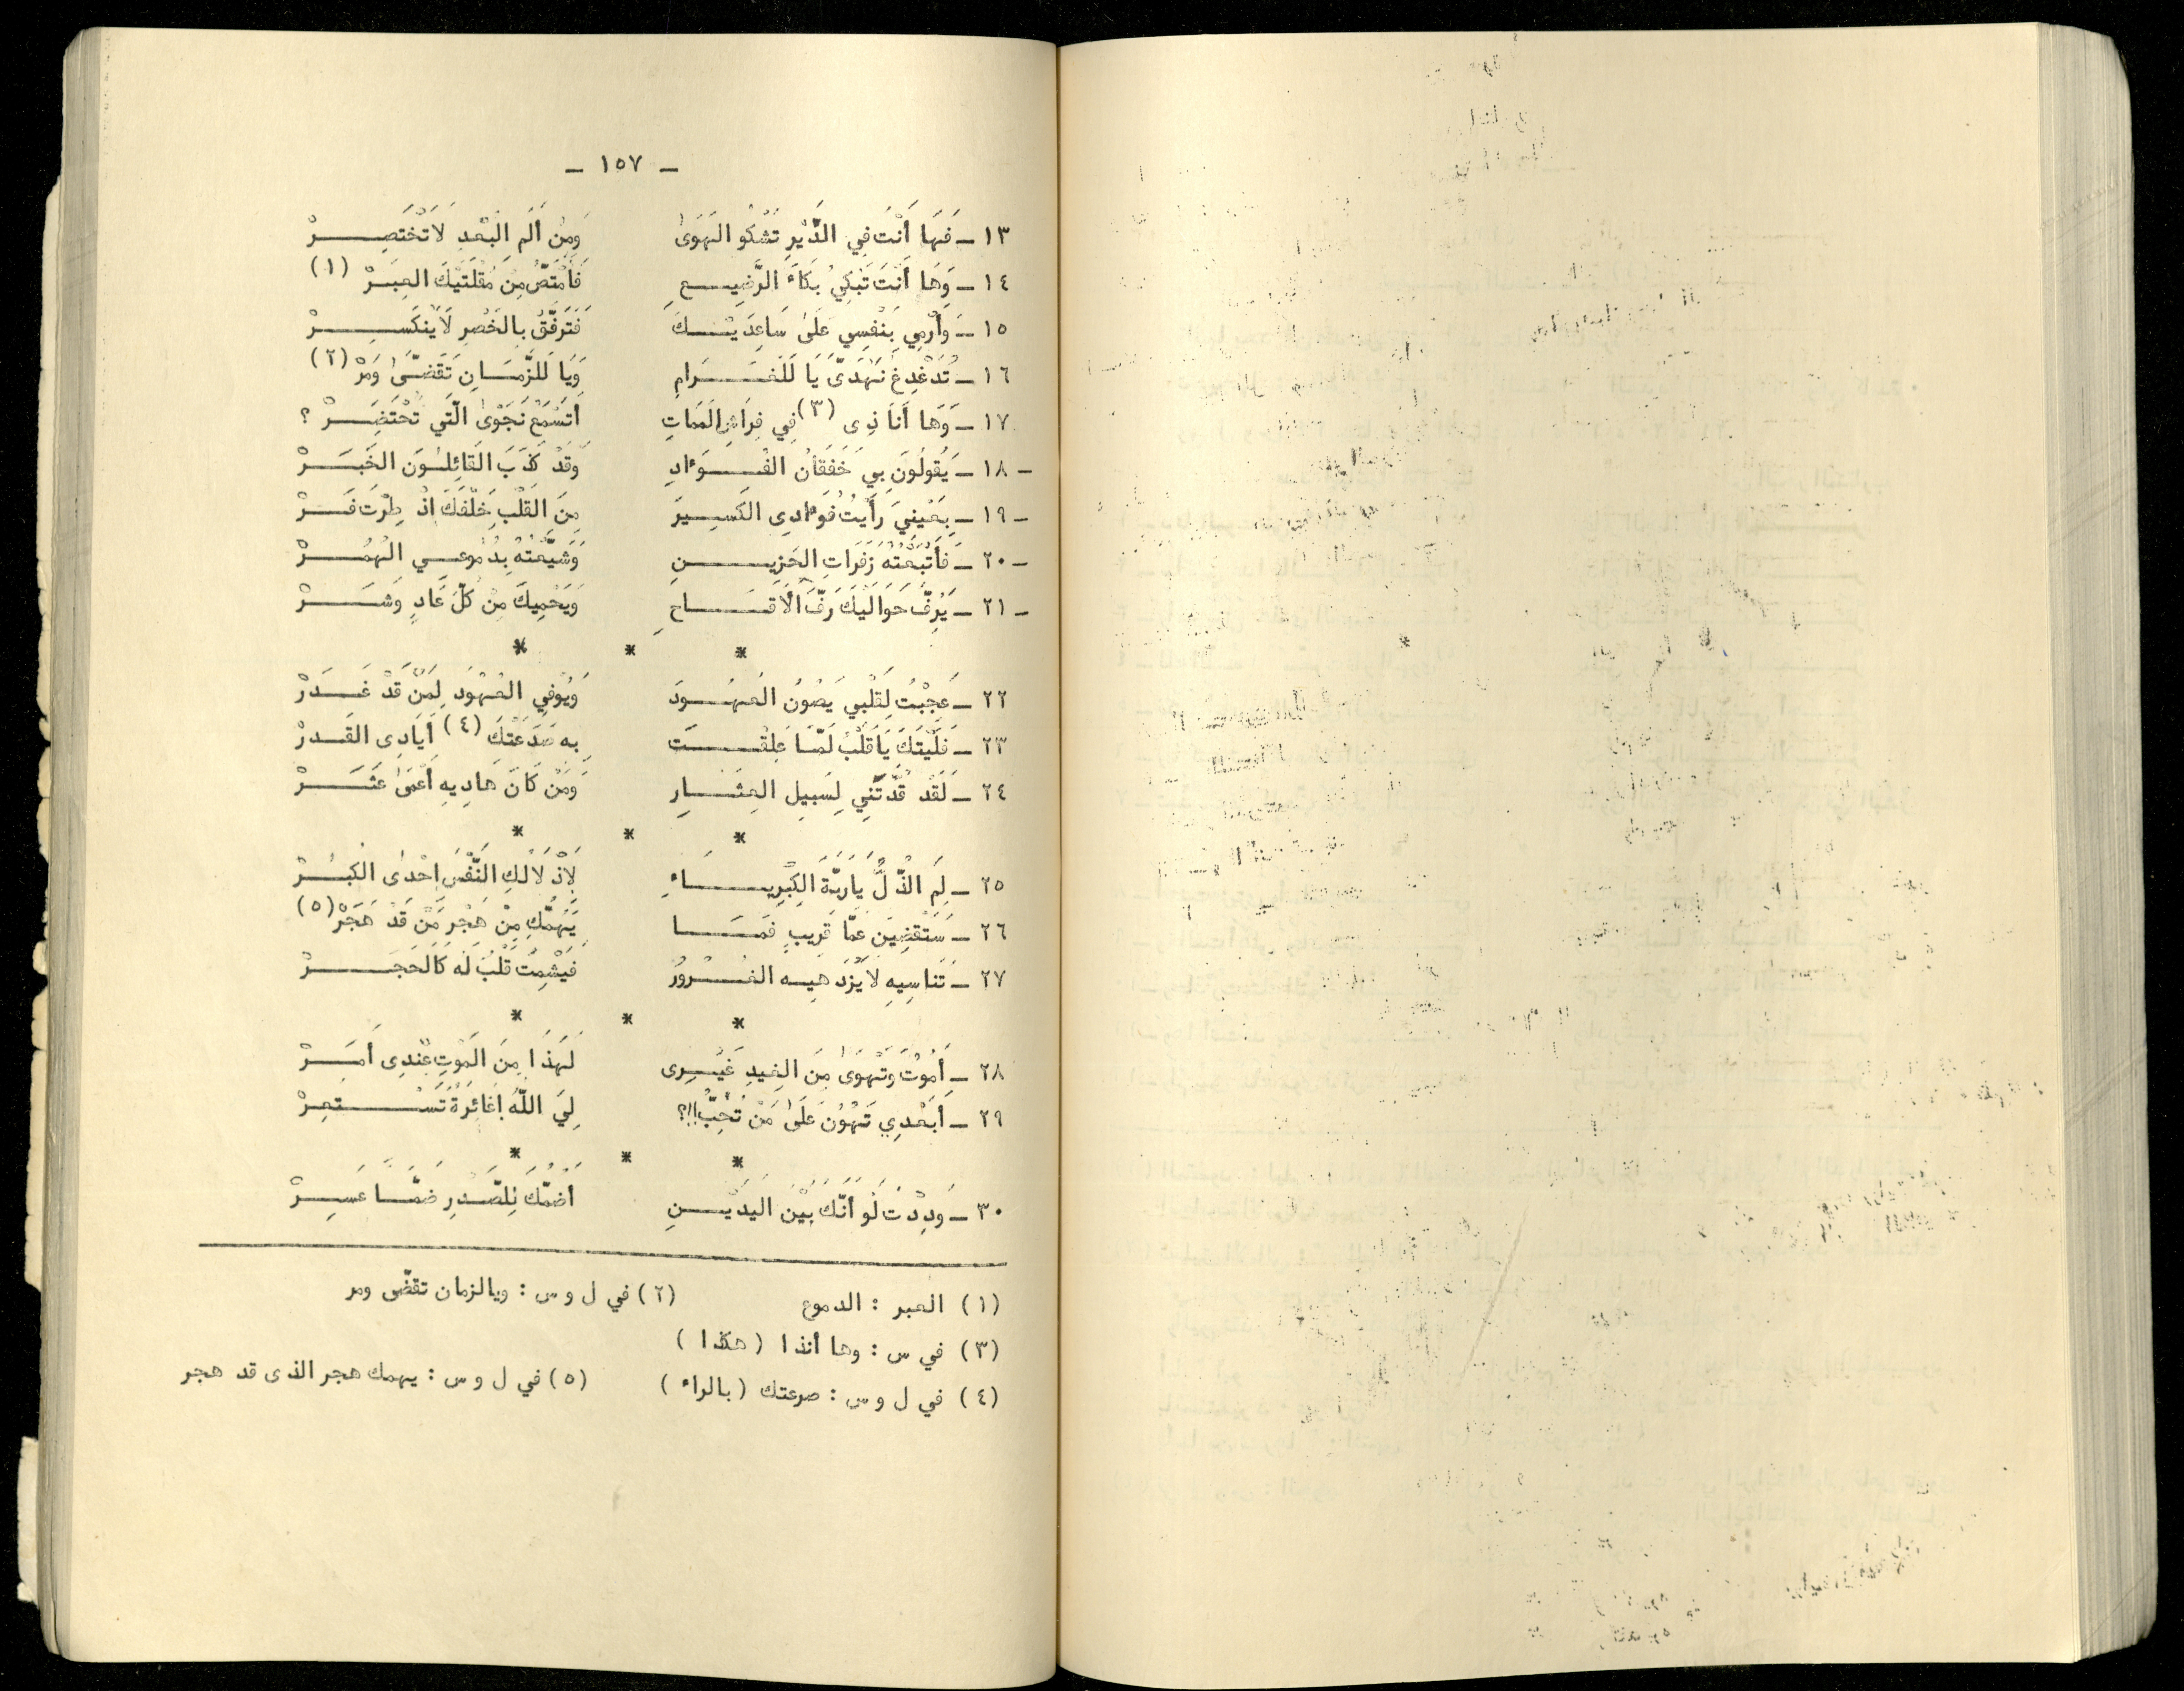 - ١٥٧ -
١٣ - فَهَا أَنْتَ فِي الدَّيْرِ تَشْكُو الهَوَىٰ وَمِنْ أَلَمِ البُعْدِ لَا تَخْتَصِرْ
١٤ - وَهَا أَنْتَ تَبْكِي بُكَاءَ الرَّضِيعِ فَأَمْتَصُّ مِنْ مُقْلَتَيْكَ العِبَرْ (١)
١٥ - وَأَرْمِي بِنَفْسِي عَلَىٰ سَاعِدَيْكَ فَتَرَفَّقْ بِالخَصْرِ لَا يَنْكَسِرْ
١٦ - تُدَغْدِغُ نَهْدَىَّ يَا لَلْغَرَامِ وَيَا لَلزَّمَانِ تَقَضَّىٰ وَمَرْ (٢)
١٧ - وَهَا أَنَا ذِى (٣) فِي فِرَاشِ المَمَاتِ أَتَسْمَعُ نَجْوَىٰ الَّتِي تُحْتَضَرْ ؟
١٨ - يَقُولُونَ بِي خَفَقَانُ الفُوَٴادِ وَقَدْ كَذَبَ القَائِلُونَ الخَبَرْ
١٩ - بِعَيْنِيَ رَأَيْتُ فُوَٴادِى الكَسِيرَ مِنَ القَلْبِ خَلْفَكَ اذْ طِرْتَ فَرْ
٢٠ - فَأَتْبَعْتُهُ زَفَرَاتِ الحَزِينِ وَشَيَّعْتُهُ بِدُمُوعِي الهُمُرْ
٢١ - يَرِفُّ حَوَالَيْكَ رَفَّ الأَقَاحِ وَيَحْمِيكَ مِنْ كُلِّ عَادٍ وَشَرْ
* * *
٢٢ - عَجِبْتُ لِقَلْبِي يَصُونُ العُهُودَ وَيُوفِي العُهُودَ لِمَنْ قَدْ غَدَرْ
٢٣ - فَلَيْتَكَ يَا قَلْبُ لَمَّا عَلِقْتَ بِهِ صَدَعَتْكَ (٤) أَيَادِى القَدَرْ
٢٤ - لَقَدْ قُدْتَنِي لِسَبِيلِ العِثَارِ وَمَنْ كَانَ هَادِيهِ أَعْمَىٰ عَثَرْ
* * *
٢٥ - لِمَ الذُّلُّ يَا رَبَّةَ الكِبْرِيَاءِ لِإذْلَالِكِ النَّفْسَ احْدَى الكِبَرْ
٢٦ - سَتَقْضِينَ عَمَّا قَرِيبٍ فَمَا يَهُمُّكِ مِنْ هَجْرِ مَنْ قَدْ هَجَرْ (٥)
٢٧ - تَنَاسِيهِ لَا يَزْدَهِيهِ الغُرُورُ فَيَشْمِتُ قَلْبٌ لَهُ كَالحَجَرْ
* * *
٢٨ - أَمُوتُ وَتَهْوَىٰ مِنَ الغِيدِ غَيْرِى لَهَذَا مِنَ المَوْتِ عِنْدِى أَمَرْ
٢٩ - أَبَعْدِي تَهُونُ عَلَىٰ مَنْ تُحِبُّ !!؟ لِيَ اللَّهُ اغَائِرَةٌ تَسْتَعِرْ
* * *
٣٠ - وَدِدْتُ لَوَ أَنَّكَ بَيْنَ اليَدَيْنِ أَضُمُّكَ لِلصَّدْرِ ضَمًّا عَسِرْ
(١) العبر : الدموع (٢) في ل و س : ويالزمان تقضّى ومر
(٣) في س : وها أنذا (هكذا)
(٤) في ل و س : صرعتك (بالراء) (٥) في ل و س : يهمك هجر الذى قد هجر